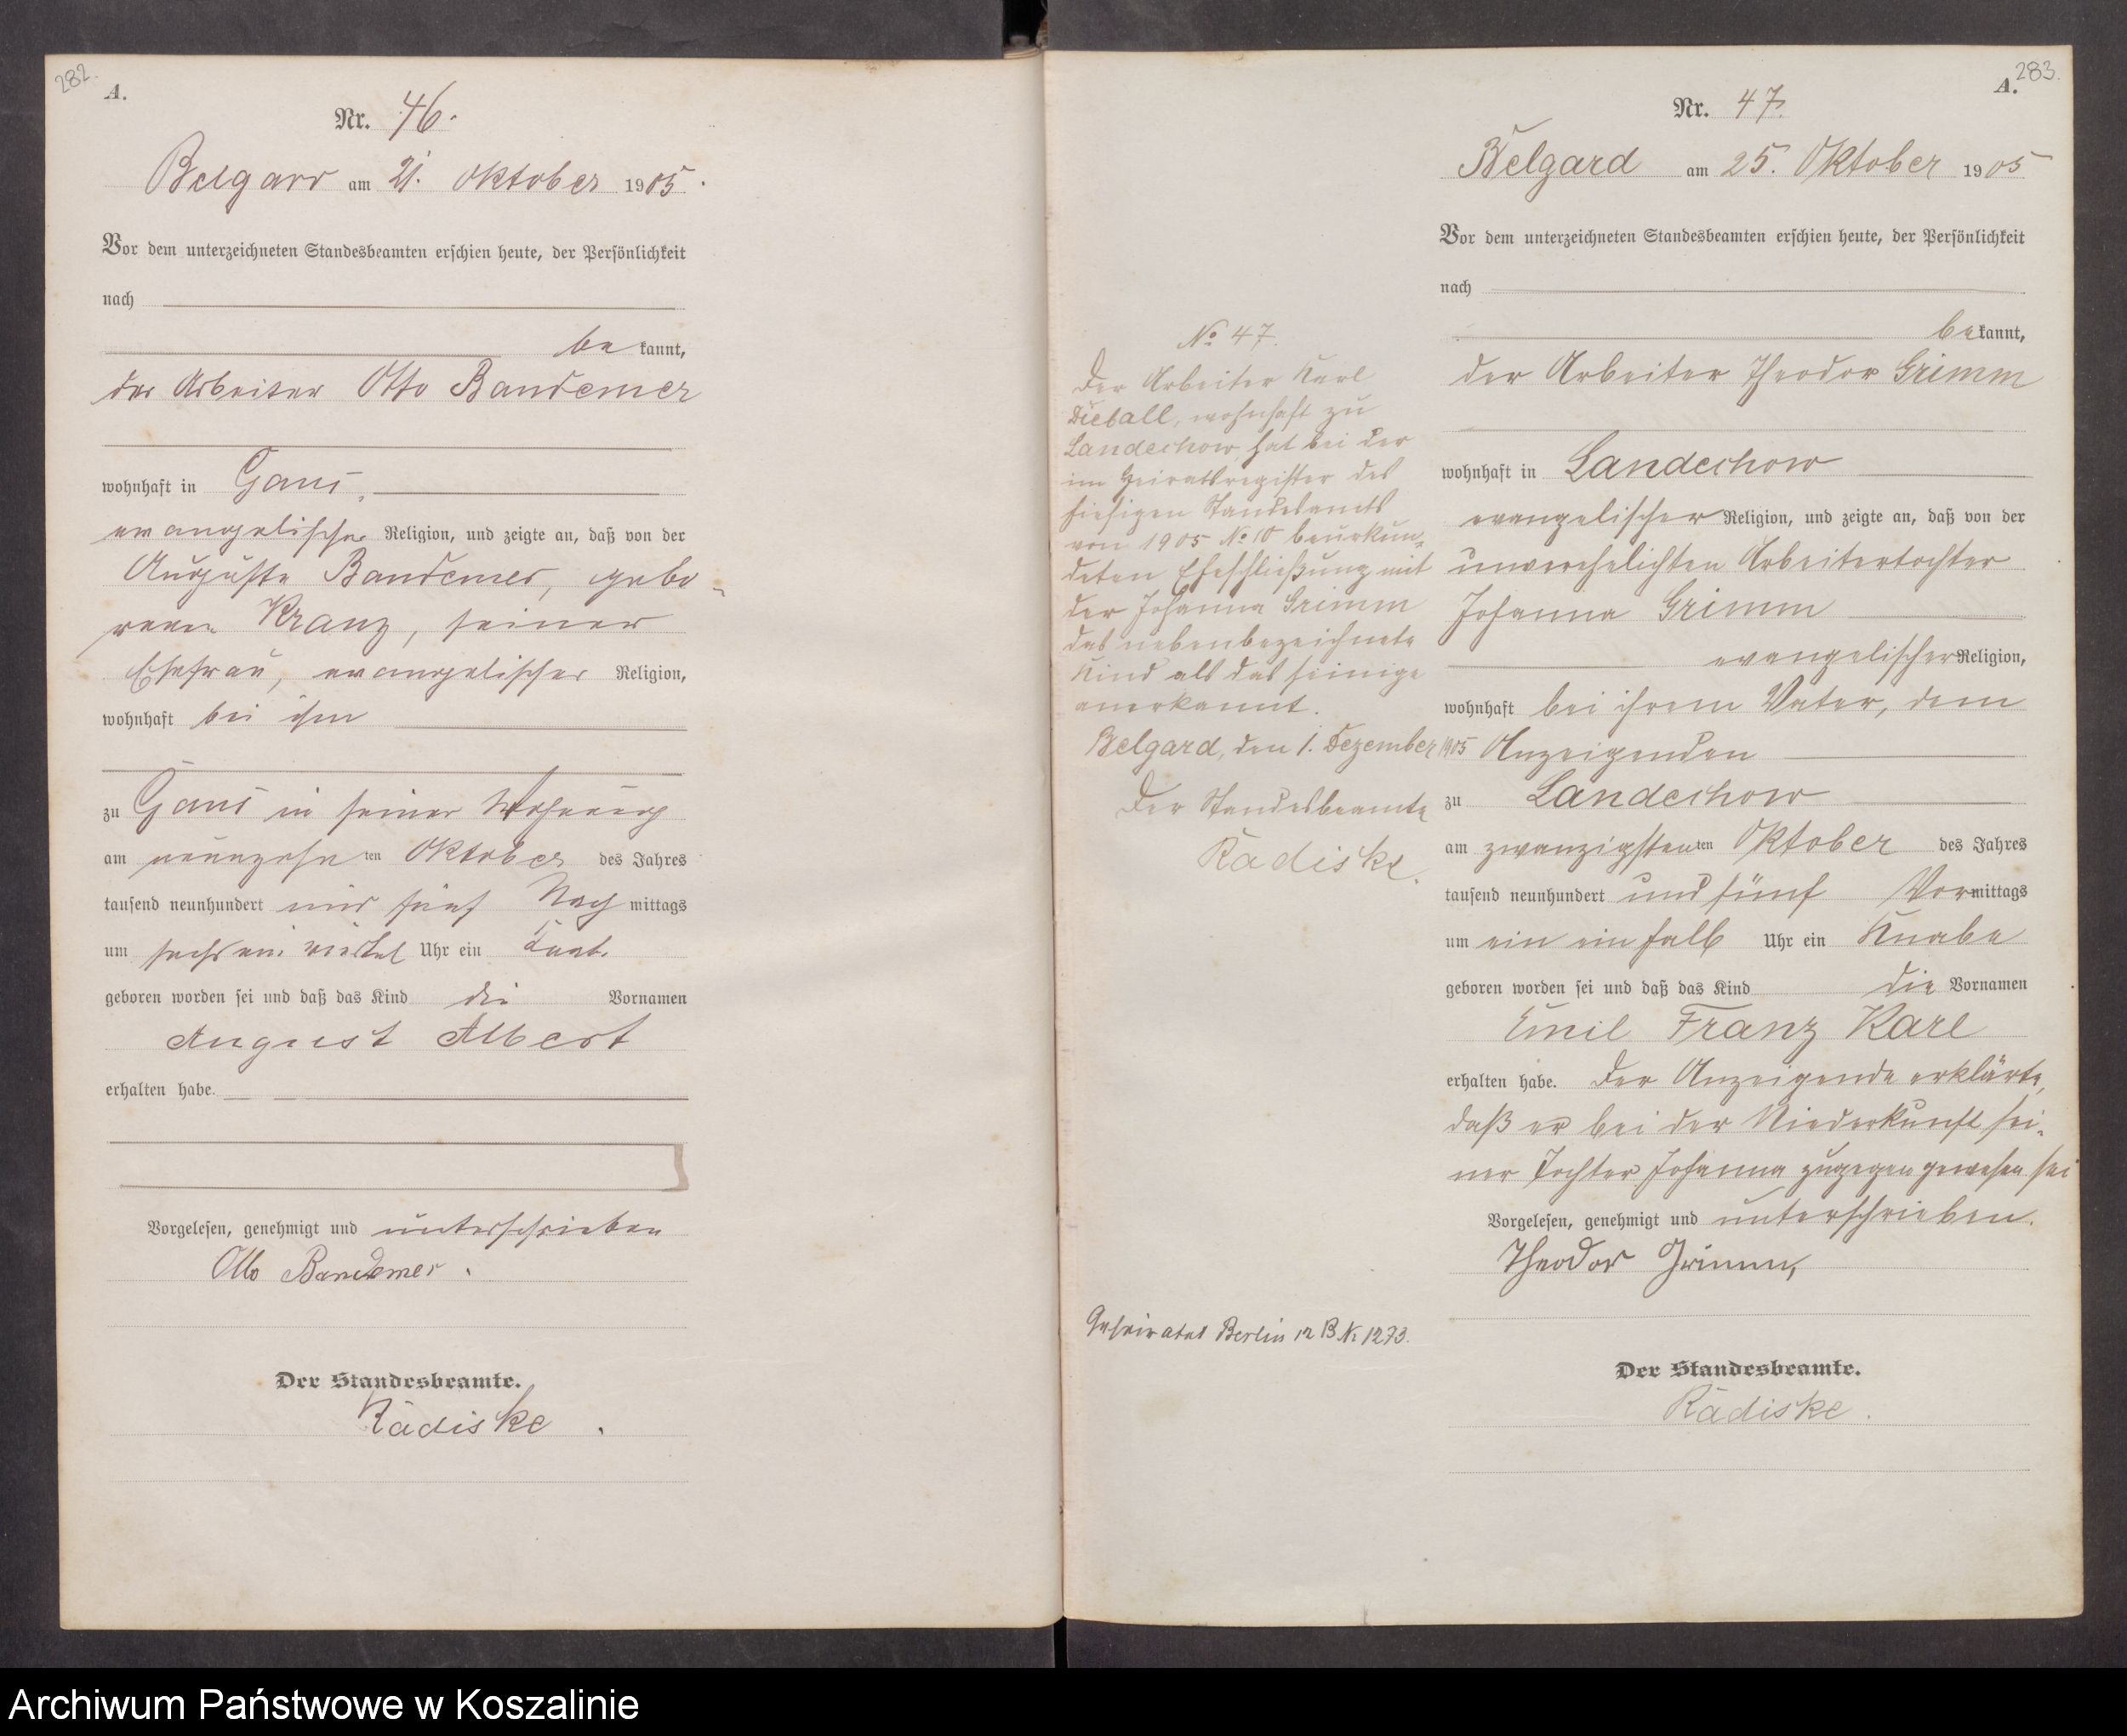 282.
A.
Nr. 46.
Belgard am 21. Oktober 1905.
Vor dem unterzeichneten Standesbeamten erschien heute, der Persönlichkeit
nach
be kannt,
der Arbeiter Otto Bandemer
wohnhaft in Gans,
evangelischer Religion, und zeigte an, daß von der
Auguste Bandemer, gebo-
renen Kranz, seiner
Ehefrau, evangelischer Religion,
wohnhaft bei ihm
zu Gans in seiner Wohnung
am neunzehn ten Oktober des Jahres
tausend neunhundert und fünf Nach mittags
um sechs ein viertel Uhr ein Knabe
geboren worden sei und daß das Kind die Vornamen
August Albert
erhalten habe.
Vorgelesen, genehmigt und unterschrieben
Otto Bandemer.
Der Standesbeamte.
Radiske.
283.
A.
Nr. 47.
Belgard am 25. Oktober 1905
Vor dem unterzeichneten Standesbeamten erschien heute, der Persönlichkeit
nach
be kannt,
der Arbeiter Theodor Grimm
wohnhaft in Landechow
evangelischer Religion, und zeigte an, daß von der
unverehelichten Arbeitertochter
Johanna Grimm
evangelischer Religion,
wohnhaft bei ihrem Vater, dem
Anzeigenden
zu Landechow
am zwanzigsten ten Oktober des Jahres
tausend neunhundert und fünf Vor mittags
um ein ein halb Uhr ein Knabe
geboren worden sei und daß das Kind die Vornamen
Emil Franz Karl
erhalten habe. Der Anzeigende erklärte,
daß er bei der Niederkunft sei-
ner Tochter Johanna zugegen gewesen sei
Vorgelesen, genehmigt und unterschrieben.
Theodor Grimm,
Der Standesbeamte.
Radiske.
No 47.
Der Arbeiter Karl
Dieball, wohnhaft zu
Landechow, hat bei der
im Heiratsregister des
hiesigen Standesamts
von 1905 No 10 beurkun-
deten Eheschließung mit
der Johanna Grimm
das nebenbezeichnete
Kind als das seinige
anerkannt.
Belgard, den 1. Dezember 1905
Der Standesbeamte
Radiske.
Geheiratet Berlin 12 B Nr 1273.
Archiwum Państwowe w Koszalinie